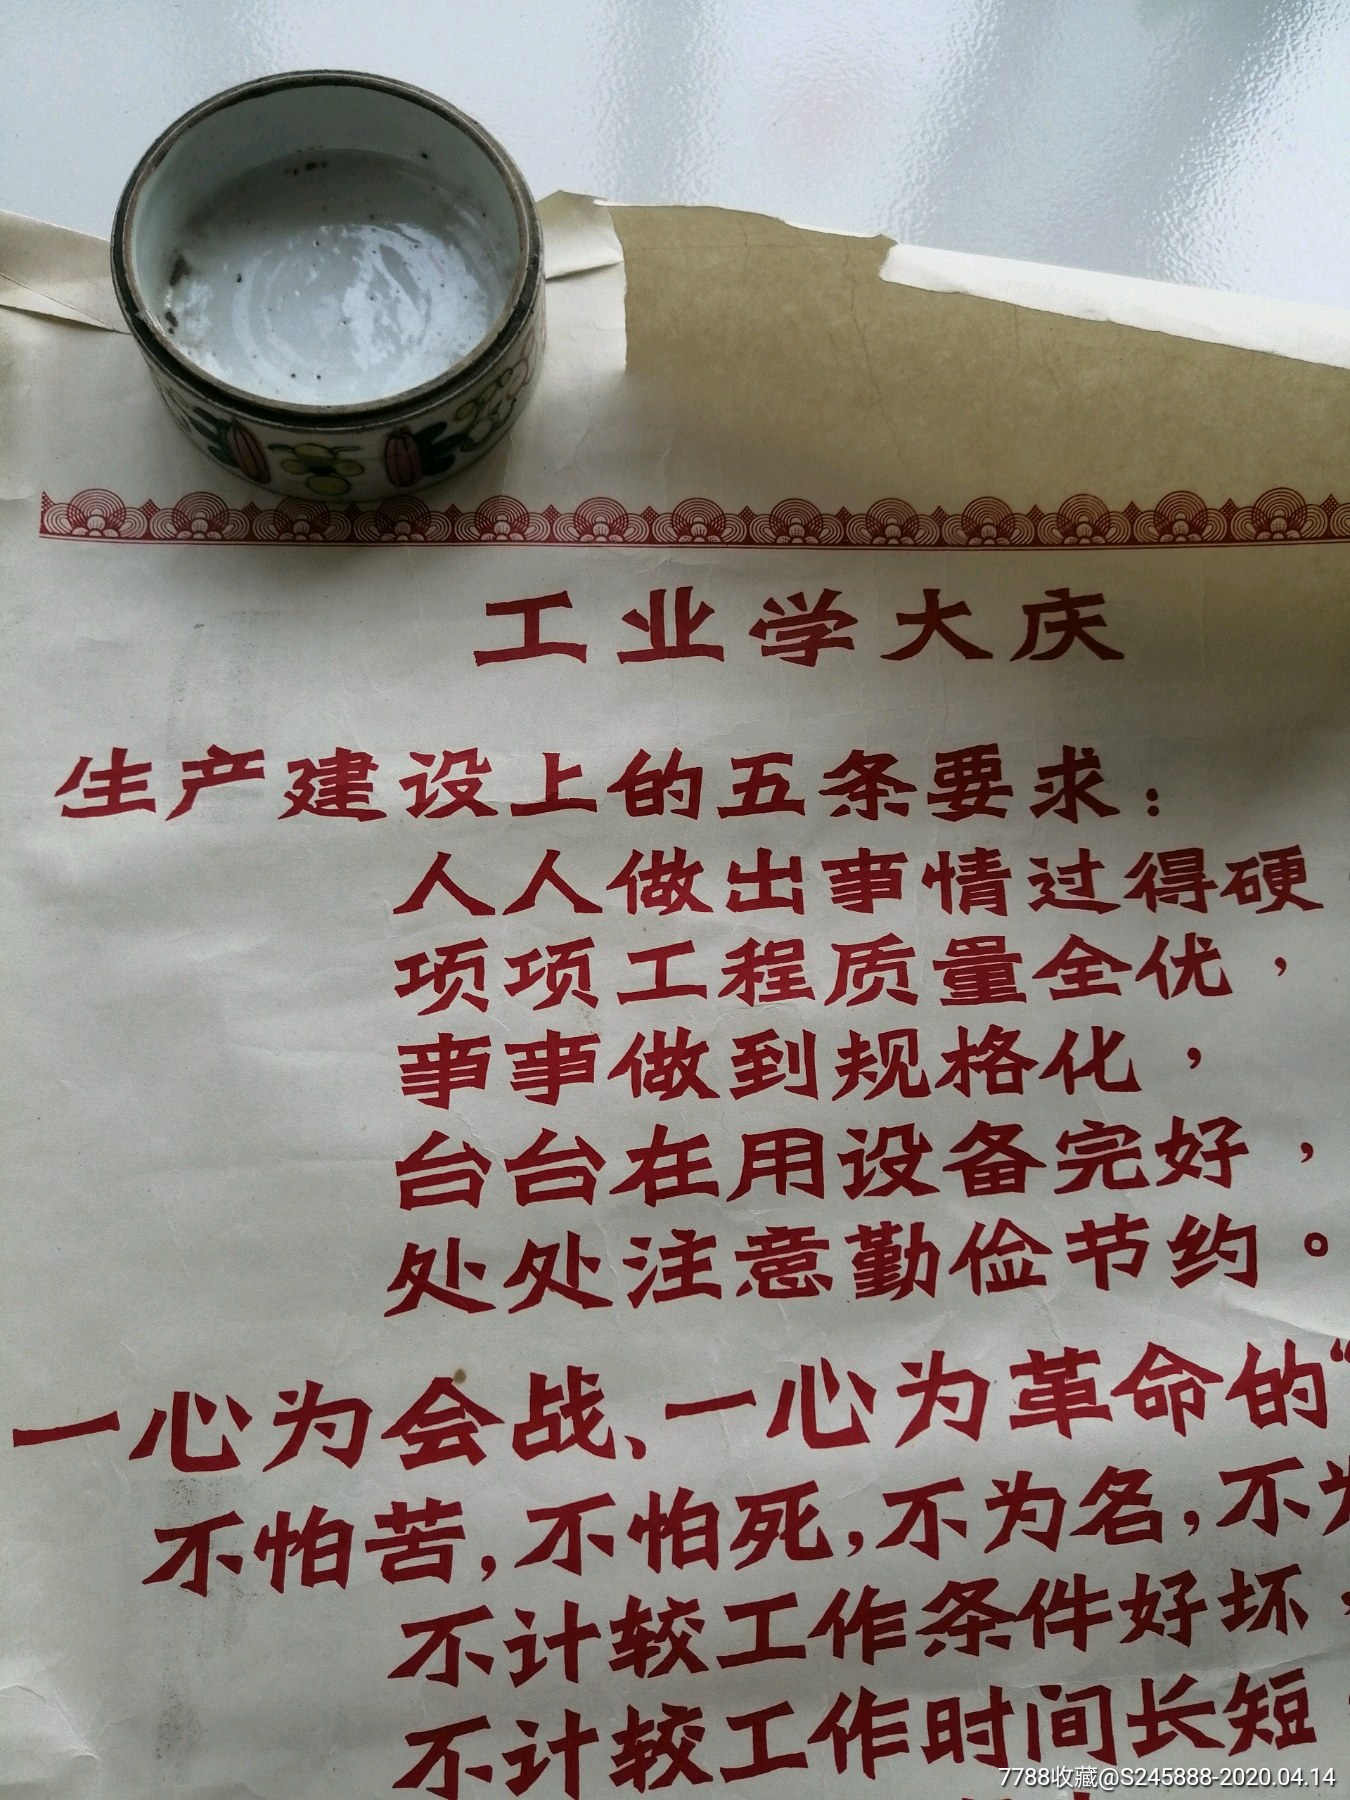 工业学大庆
生产建设上的五条要求：
人人做出事情过得硬
项项工程质量全优，
事事做到规格化，
台台在用设备完好，
处处注意勤俭节约。
一心为会战、一心为革命的“
不怕苦，不怕死，不为名，不为
不计较工作条件好坏，
不计较工作时间长短，
7788收藏@S245888-2020.04.14